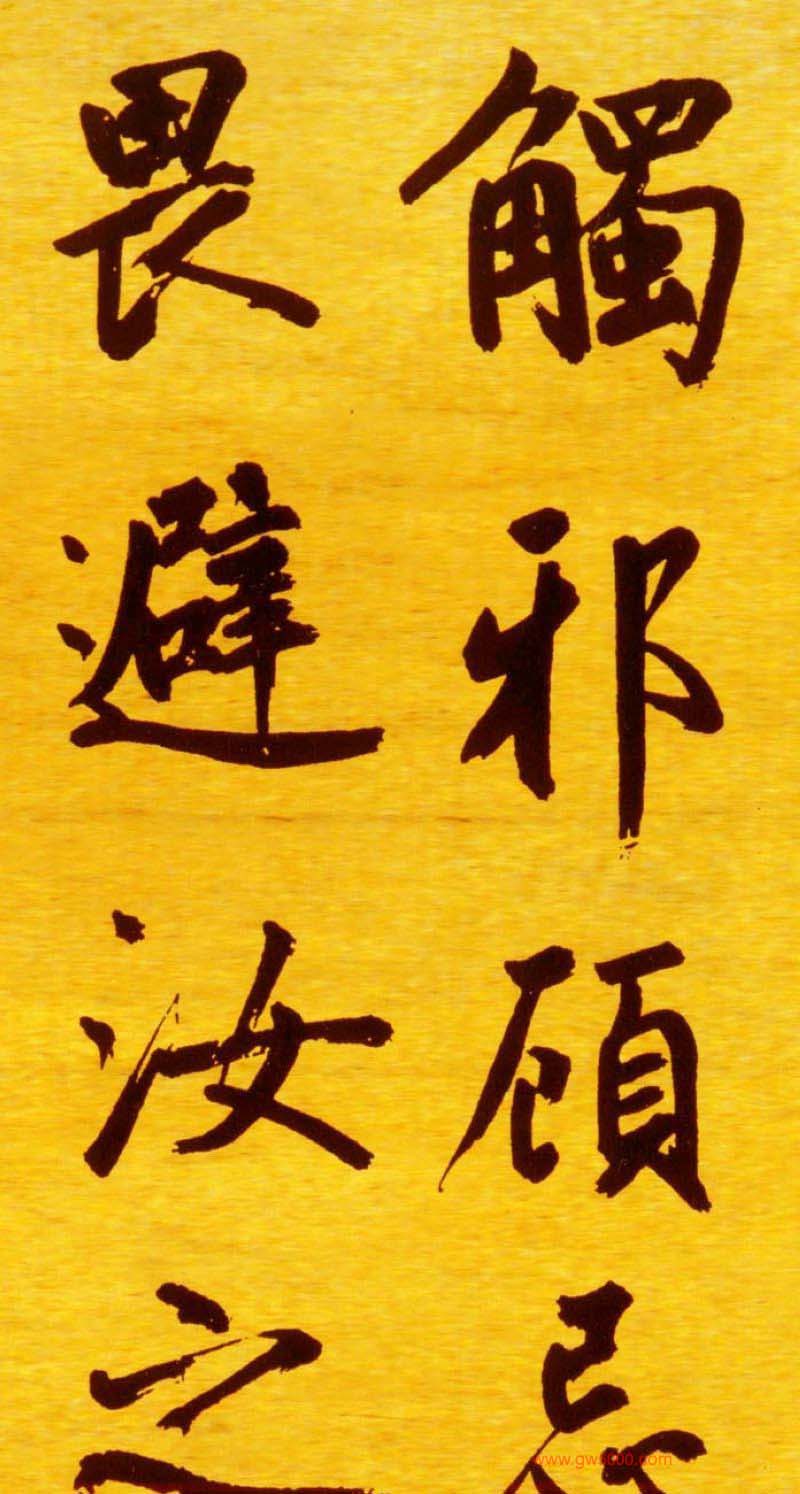 觸邪顧忌
畏避汝之
www.gw5000.com